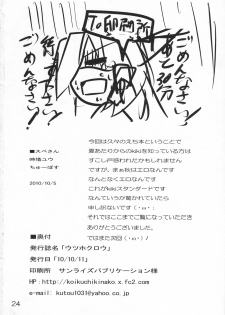 To印刷所
ごめんなさい!
待って下さい
あと30分
ごめんなさい!
■スペさん
時塔ユウ
ちゅーぼす
2010/10/5
今回は久々のえち本ということで
夏あたりからのkikiを知っている方は
すこし戸惑われたかもしれません
ですが、まぁ秋はエロなんです
なんとなくエロなんです
これがkikiスタンダードです
なんていうか遅れていたら
申し訳ないです（・ω・）
それではここまでご覧になっていただき
ありがとうございました。
ではまた次回（・ω・）ノ
■奥付
発行誌名「ウツホクロウ」
発行日「10/10/11」
印刷所　サンライズパブリケーション様
HP:http://koikuchikinako.x.fc2.com
e-mail: kutou1031@yahoo.co.jp
24